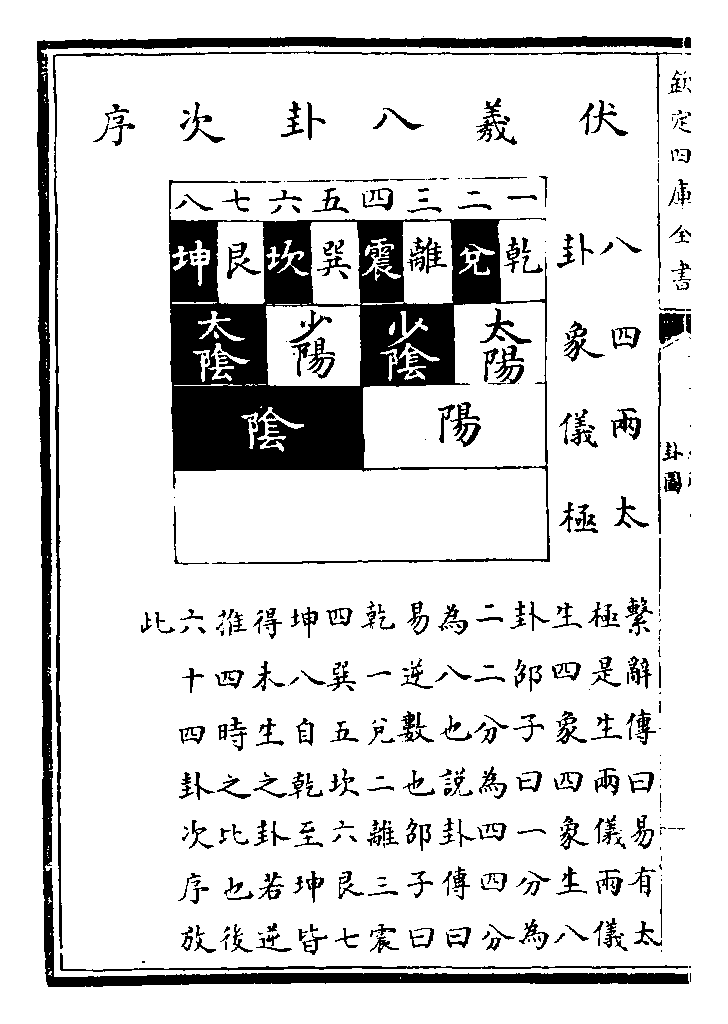 欽定四庫全書
卦圖
伏羲八卦次序
八卦
四象
兩儀
太極
一二三四五六七八
乾兌離震巽坎艮坤
太陽 少陰 少陽 太陰
陽 陰
繫辭傳曰易有太
極是生兩儀兩儀
生四象四象生八
卦邵子曰一分為
二二分為四四分
為八也說卦傳曰
易逆數也邵子曰
乾一兌二離三震
四巽五坎六艮七
坤八自乾至坤皆
得未生之卦若逆
推四時之比也後
六十四卦次序放
此